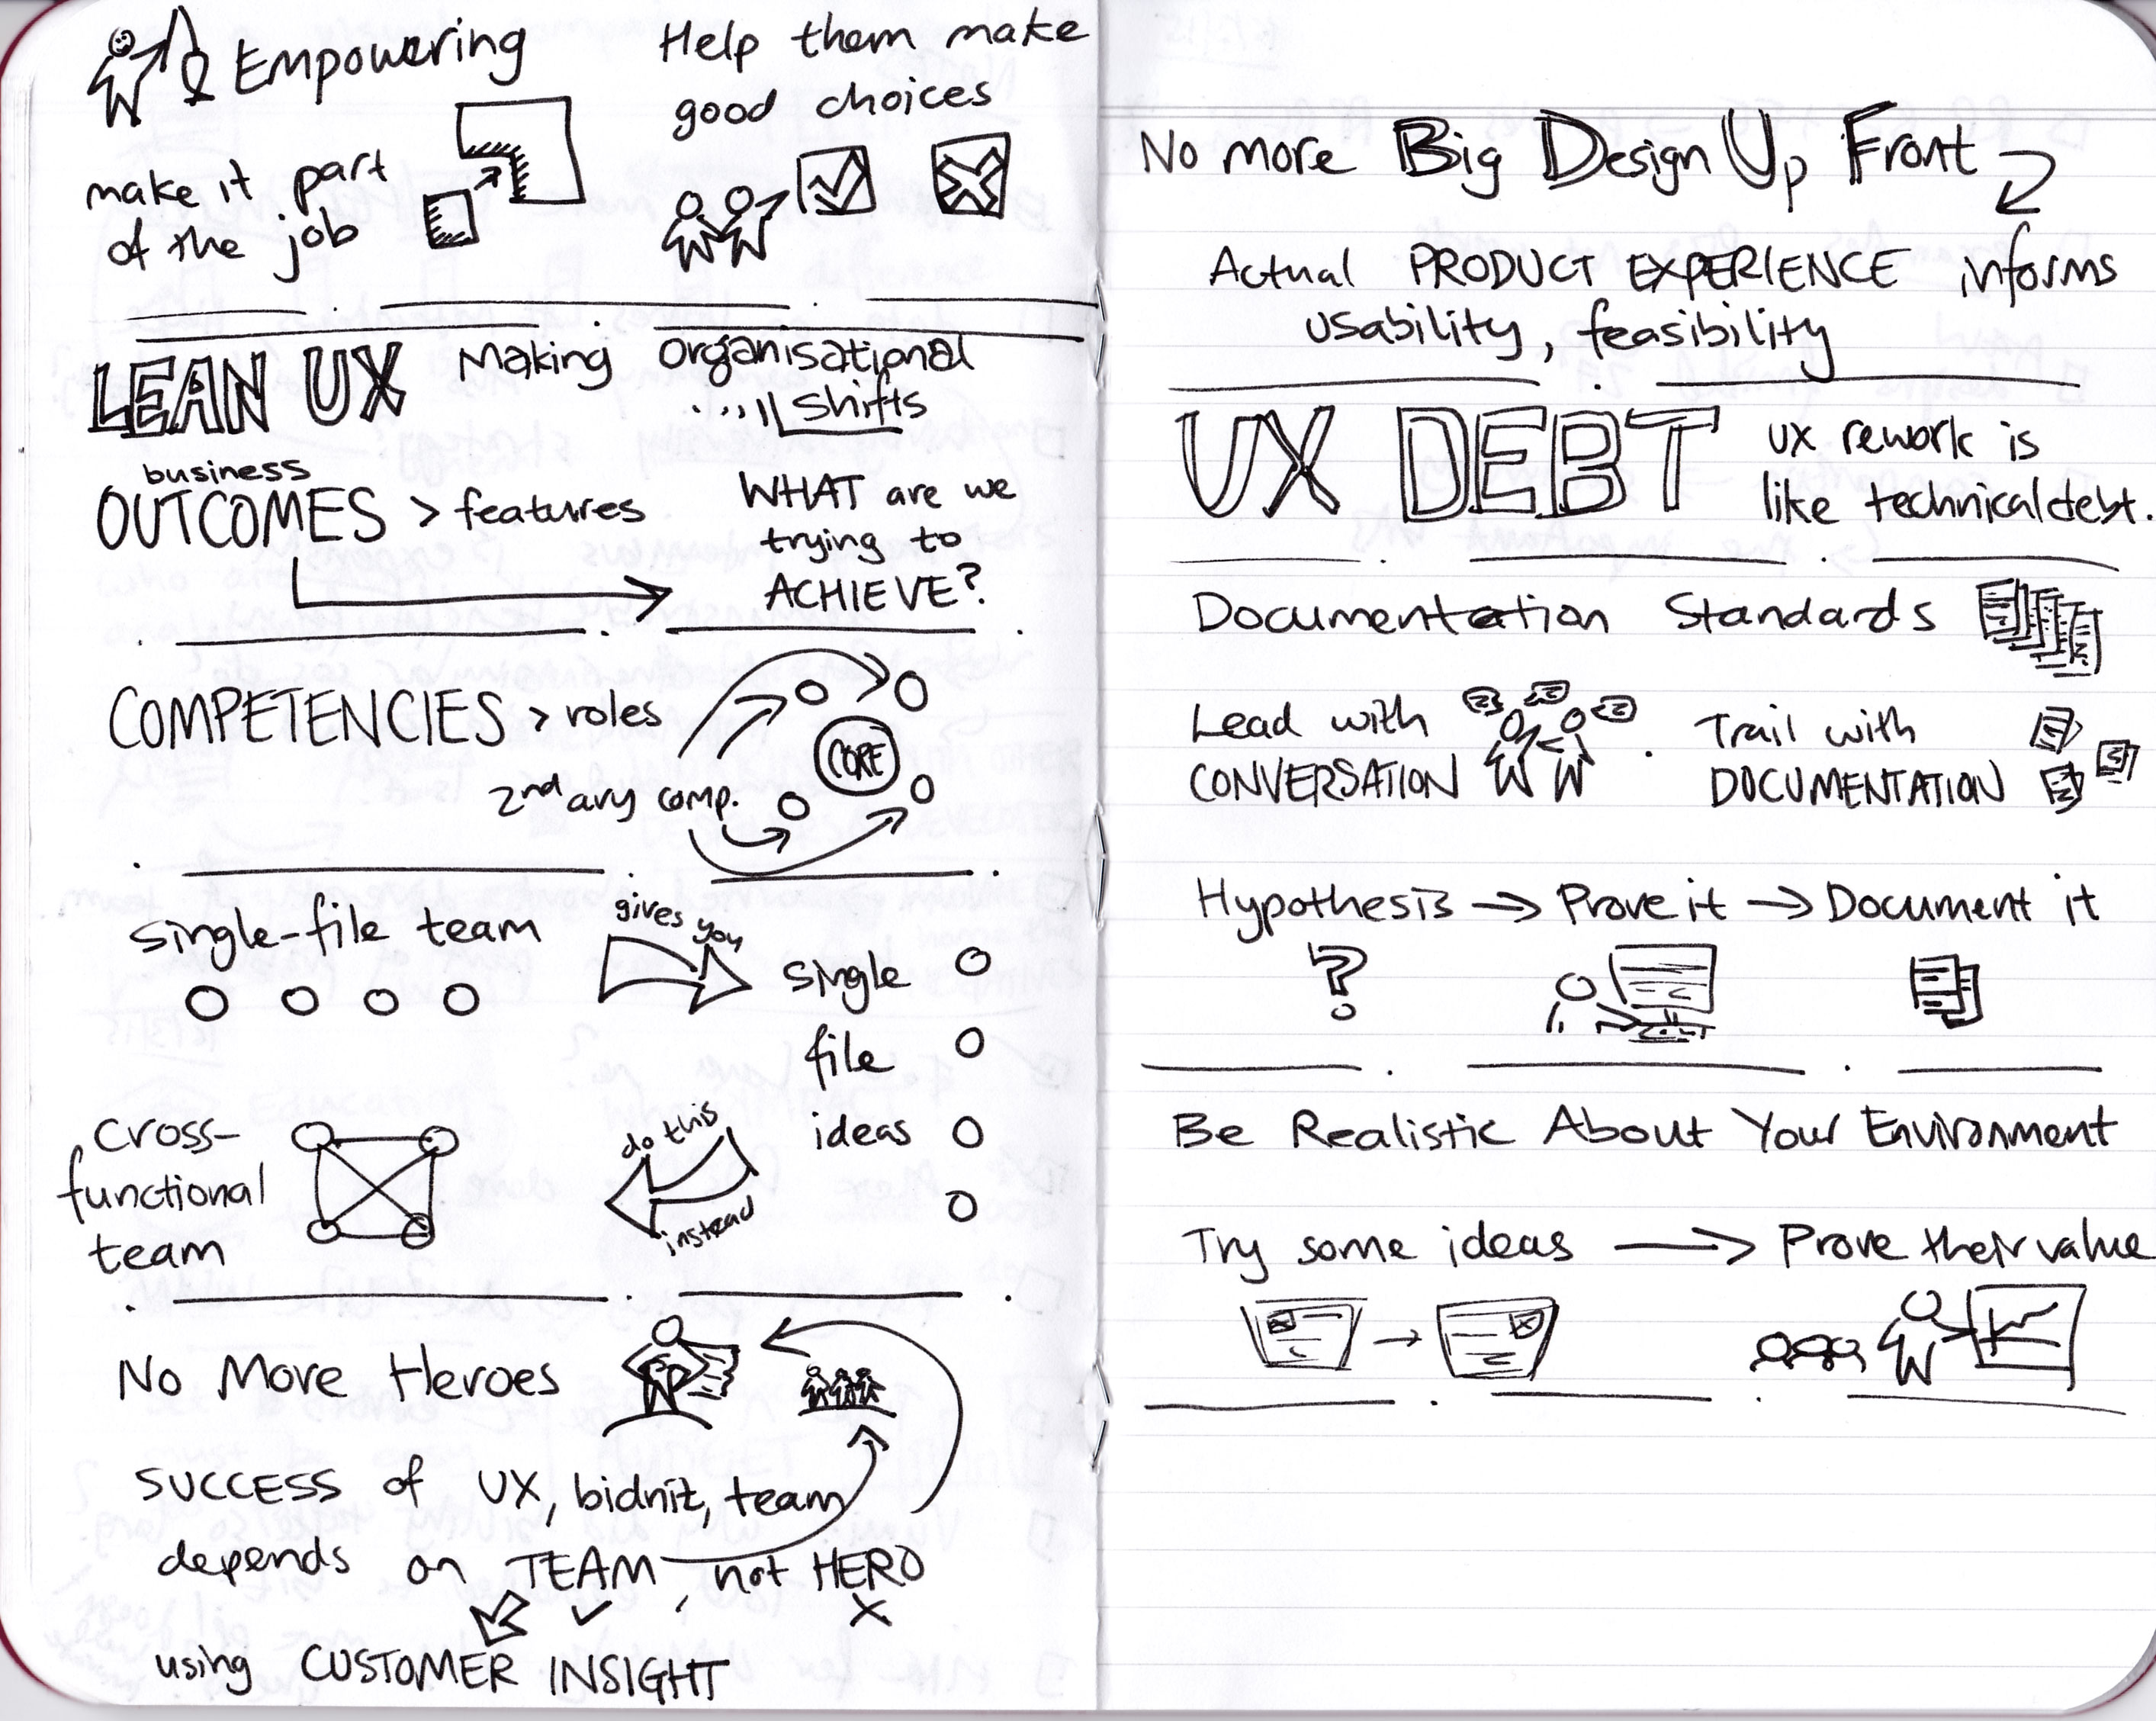 Empowering
make it part
of the job
Help them make
good choices
LEAN UX Making organisational
shifts
business
OUTCOMES > features
WHAT are we
trying to
ACHIEVE?
COMPETENCIES > roles
CORE
2ndary comp.
single-file team
gives you
single
file
ideas
Cross-
functional
team
do this
instead
No More Heroes
SUCCESS of UX, bidnit, team
depends on TEAM, not HERO
using CUSTOMER INSIGHT
No more Big Design Up Front
Actual PRODUCT EXPERIENCE informs
usability, feasibility
UX DEBT
UX rework is
like technical debt.
Documentation Standards
Lead with
CONVERSATION
Trail with
DOCUMENTATION
Hypothesis → Prove it → Document it
?
Be Realistic About Your Environment
Try some ideas → Prove their value